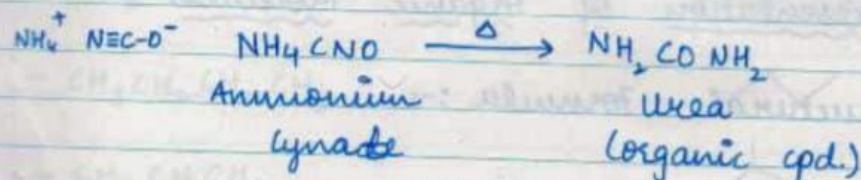 NH₄⁺ N≡C-O⁻ NH₄CNO →Δ NH₂CONH₂
Ammonium Urea
Cynate (organic cpd.)